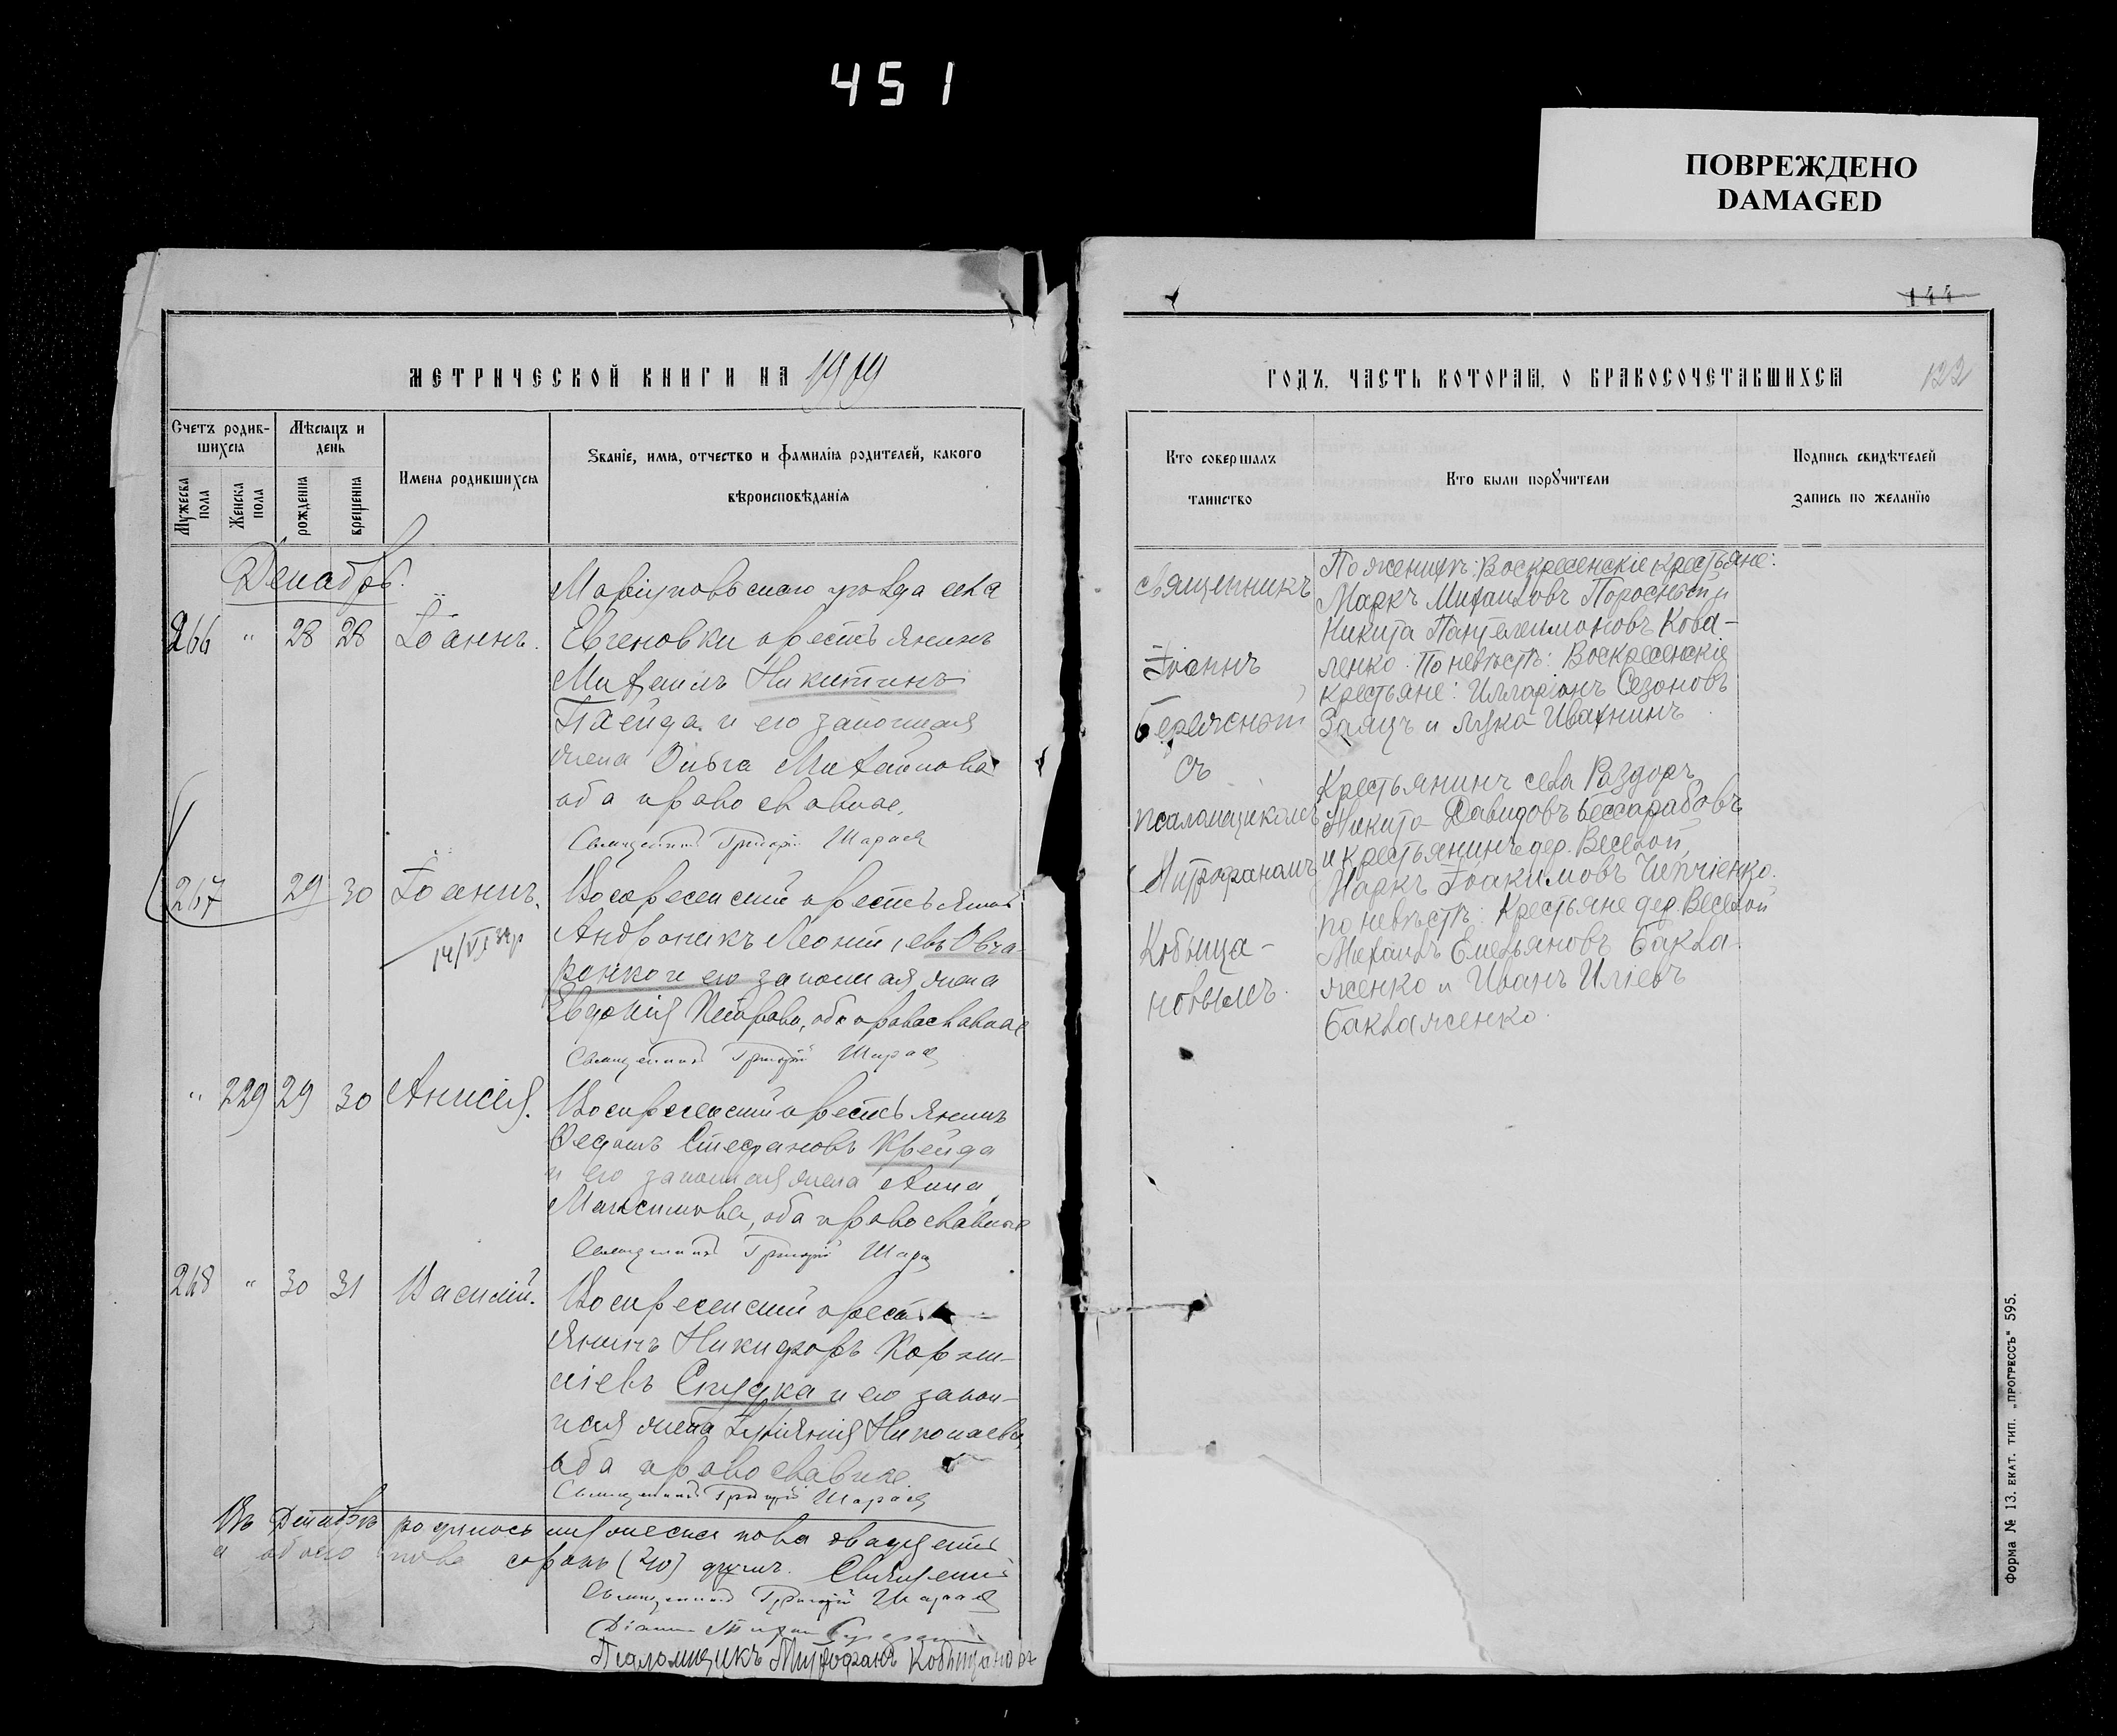 451
ПОВРЕЖДЕНО
DAMAGED
МЕТРИЧЕСКОЙ КНИГИ НА 1919
Счетъ родив-
шихся
Мѣсяцъ и
день
Имена родившихся
Званіе, имя, отчество и фамилія родителей, какого
вѣроисповѣданія
Мужеска пола
Женска пола
рожденія
крещенія
Декабрь.
Маріупольскаго уѣзда села
266 " 28 28 Іоаннъ. Евгеновки крестьянинъ
Михаилъ Никитинъ
и его законная
жена Ольга Михайлова
оба православные.
Священникъ Григорій
267 29 30 Іоаннъ. Воскресенскій крестьянинъ
14/VI
Андроникъ Овча-
ренко и его законная жена
Евдокія Петрова, оба православные
Священникъ Григорій
" 229 29 30 Анисія. Воскресенскій крестьянинъ
Стефановъ Крейда
и его законная жена Анна
Максимова, оба православные
Священникъ Григорій
268 " 30 31 Василій. Воскресенскій кресть-
янинъ Никифоръ Корни-
ліевъ и его закон-
ная жена Николаева
оба православные
Священникъ Григорій
Въ Декабрѣ родилось женска пола двадцать
а обоего пола сорокъ (40) душъ.
Священникъ Григорій
Псаломщикъ Митрофанъ Кобыщановъ
144
ГОДЪ, ЧАСТЬ КОТОРАЯ, О БРАКОСОЧЕТАВШИХСЯ
122
Кто совершалъ
таинство
Кто были поручители
Подпись свидѣтелей
запись по желанію
Священникъ
Іоаннъ
съ
псаломщикомъ
Митрофаномъ
Кобыща-
новымъ.
По женихѣ: Воскресенскіе крестьяне:
Маркъ Михаиловъ
Никита Пантелеимоновъ Кова-
ленко. По невѣстѣ: Воскресенскіе
крестьяне: Илларіонъ Сезоновъ
Заяцъ и Лука Ивахнинъ.
Крестьянинъ села Раздоръ
Никита Давидовъ Бессарабовъ
и крестьянинъ дер. Веселой,
Маркъ Іоакимовъ
по невѣстѣ: Крестьяне дер. Веселой
Михаилъ Емельяновъ Бакла-
женко и Иванъ Иліевъ
Баклаженко.
Форма № 13. ЕКАТ. ТИП. „ПРОГРЕССЪ" 595.